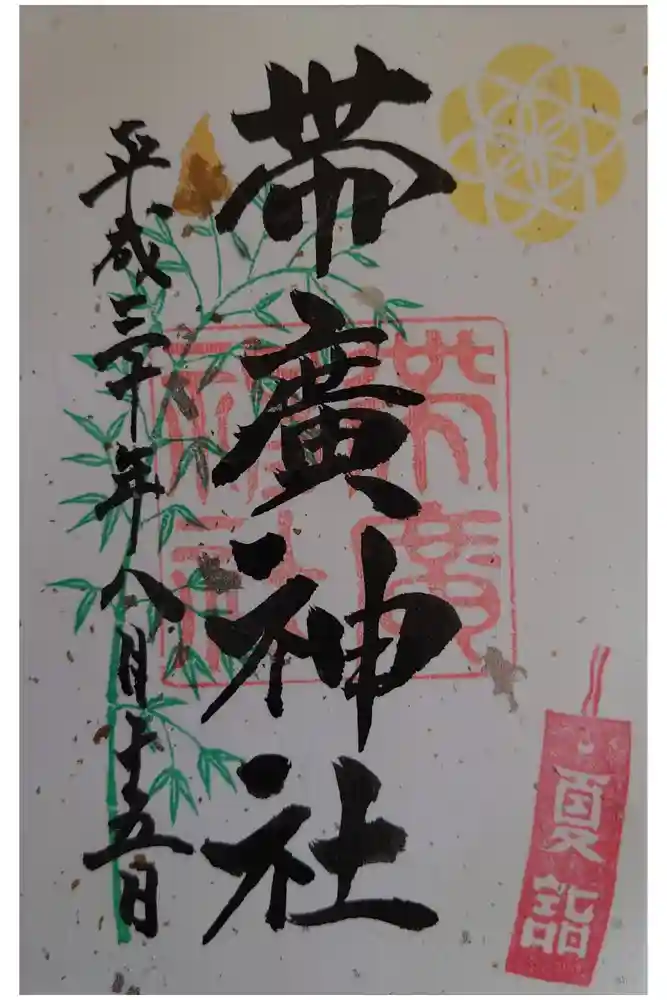 夏詣
帯廣神社
帯廣
神社
平成三十年八月十五日